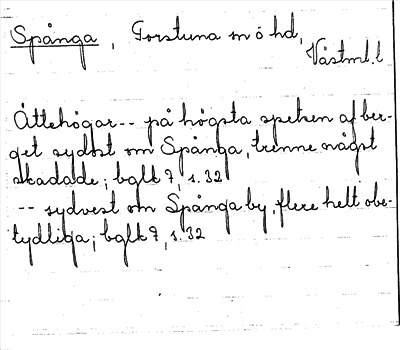 Spånga, Torstuna m ö hd,
Västml. l
Ättehögar -- på högsta spetsen af ber-
get sydost om Spånga, trenne något
skadade; bglt 7, s. 32
-- sydvest om Spånga by, flere helt obe-
tydliga; bglt 7, s. 32